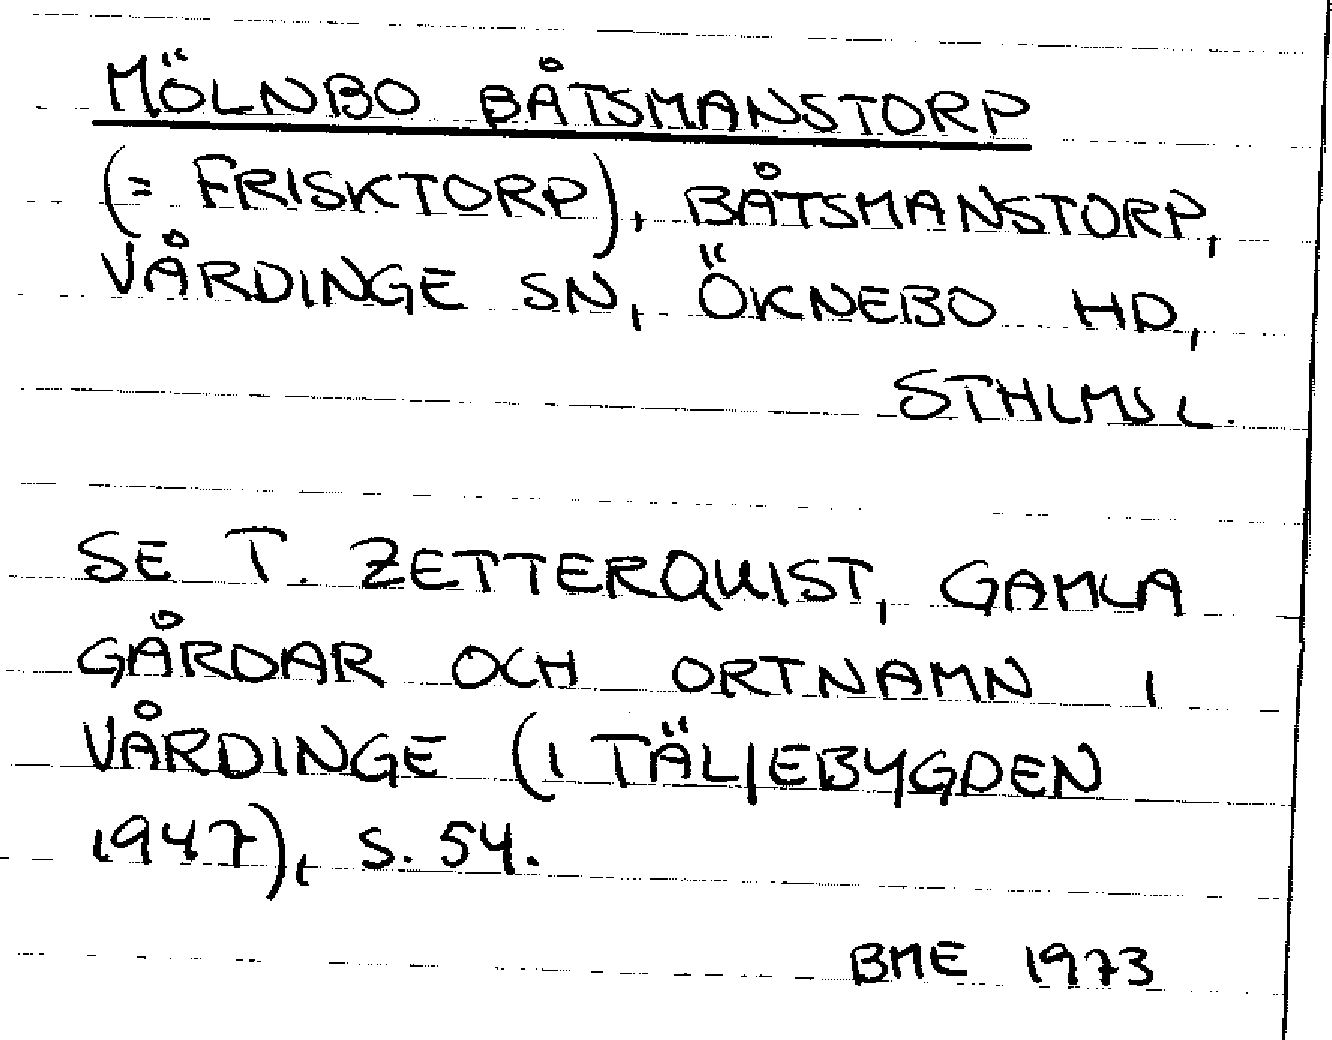 MÖLNBO BÅTSMANSTORP
(= FRISKTORP), BÅTSMANSTORP,
VÅRDINGE SN, ÖKNEBO HD,
STHLMS L.
SE T. ZETTERQUIST, GAMLA
GÅRDAR OCH ORTNAMN I
VÅRDINGE (I TÄLJEBYGDEN
1947), S. 54.
BME 1973